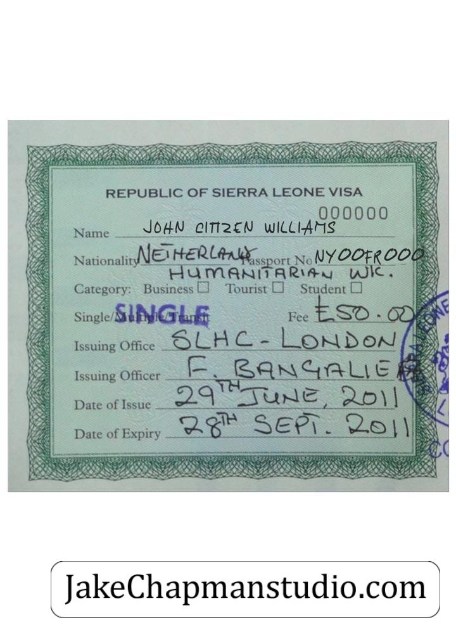 REPUBLIC OF SIERRA LEONE VISA
000000
Name JOHN CITIZEN WILLIAMS
Nationality NETHERLAND Passport No NY00FR000
HUMANITARIAN WK.
Category: Business Tourist Student
Single/Multiple/Transit SINGLE Fee £50.00
Issuing Office SLHC - LONDON
Issuing Officer F. BANGALIE
Date of Issue 29TH JUNE, 2011
Date of Expiry 28TH SEPT. 2011
JakeChapmanstudio.com